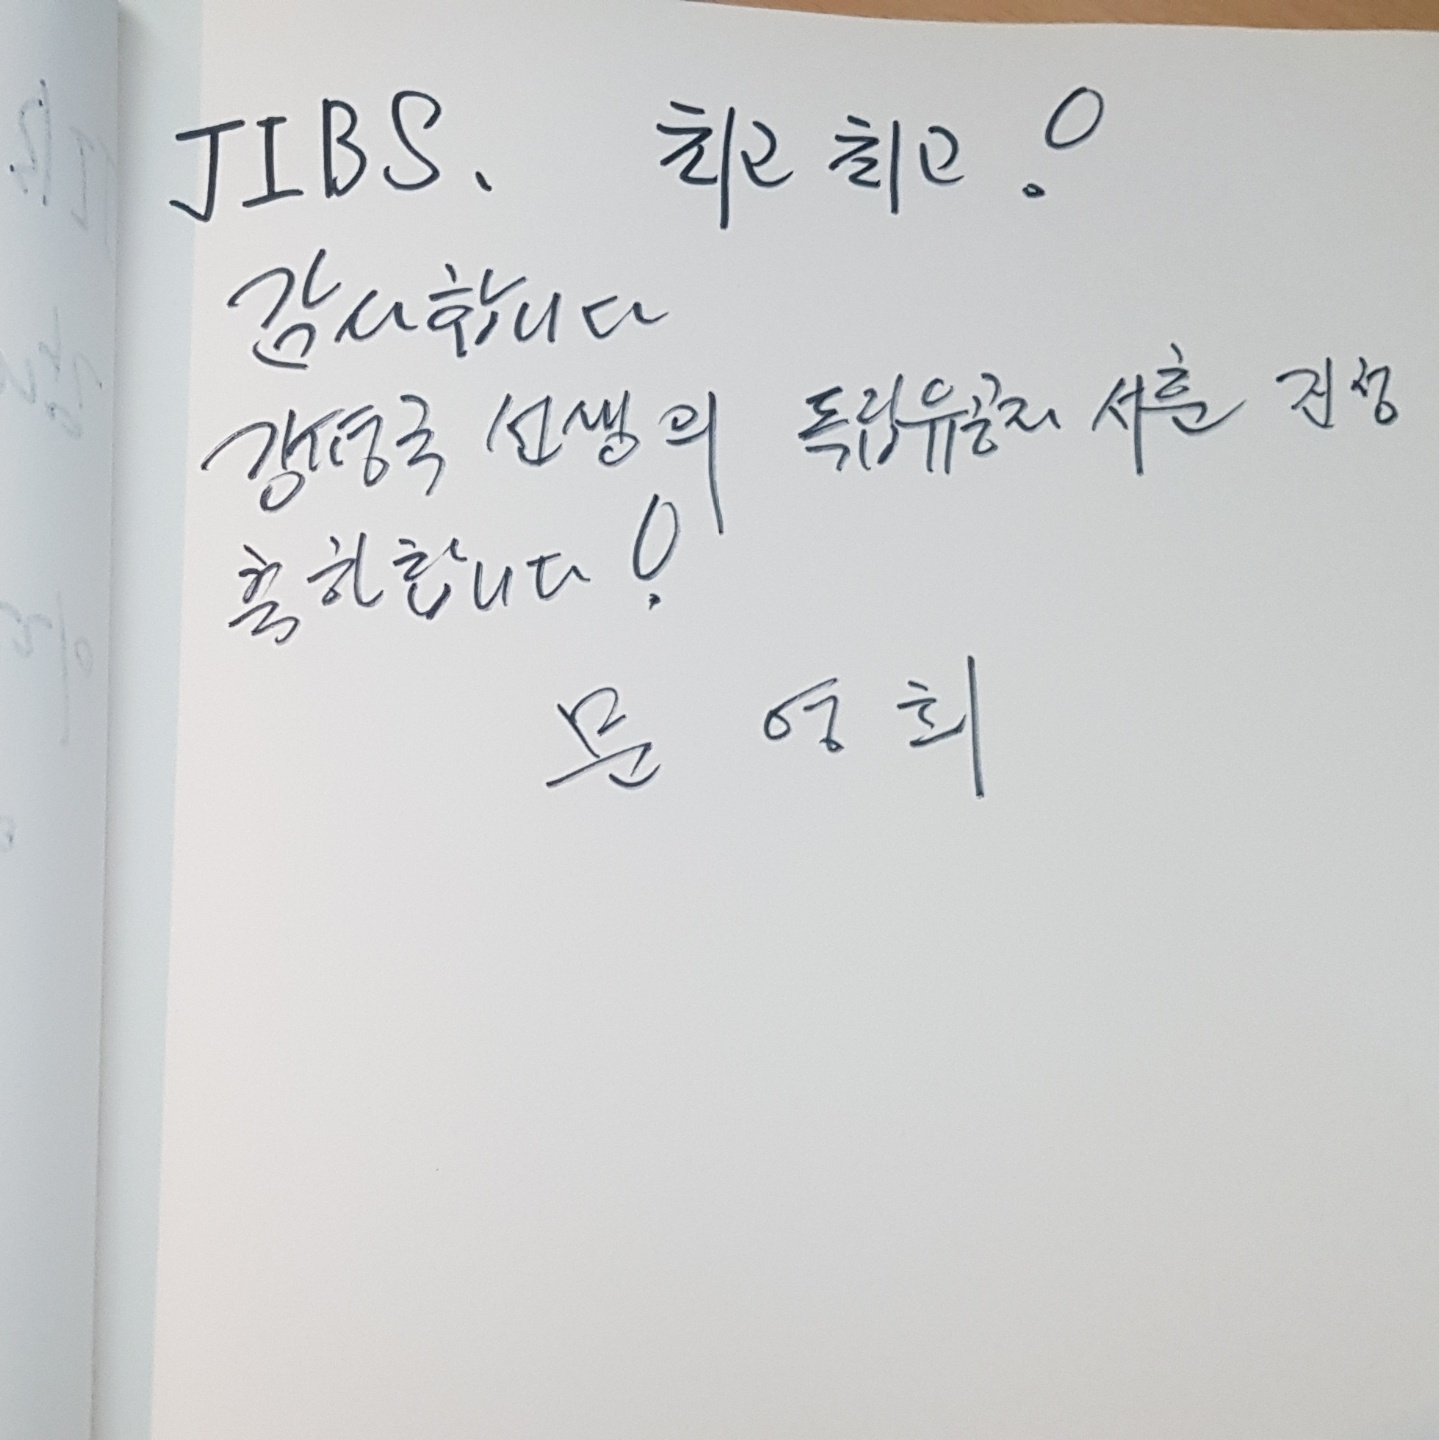 JIBS. 최고 최고!
감사합니다
강성국 선생의 독립유공자 서훈 진성
축하합니다!
문 영 희